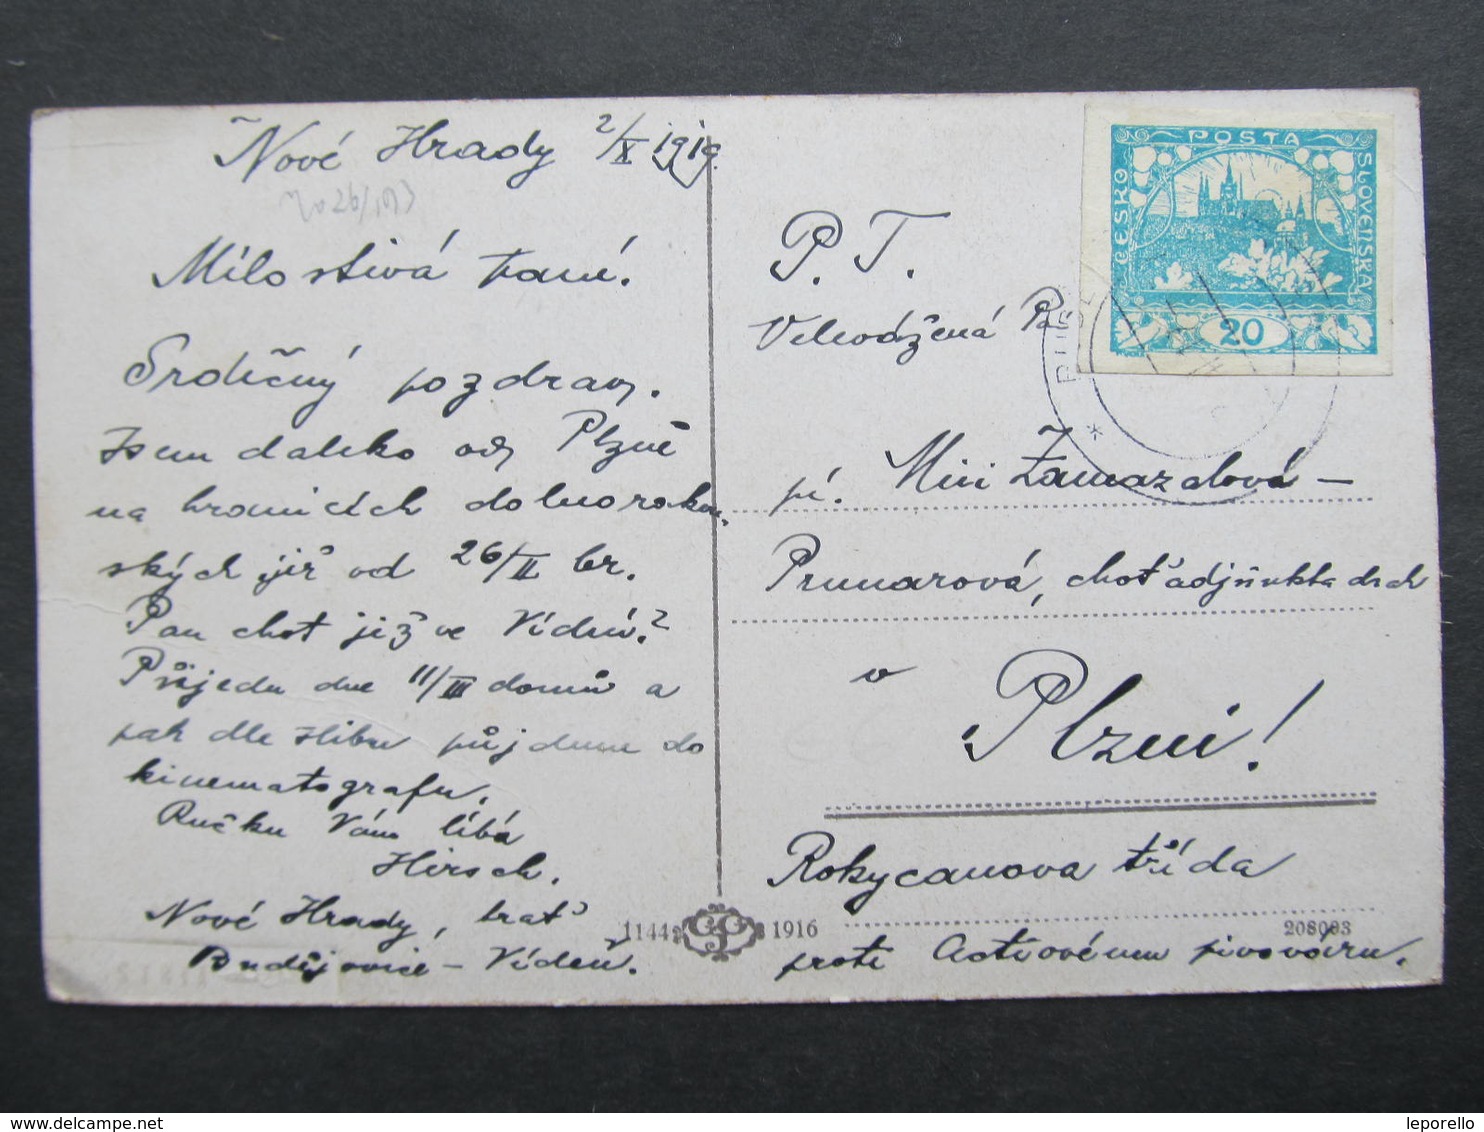 Nové Hrady 2/X 1919.
Milostivá paní.
Srdečný pozdrav.
Jsem daleko od Plzně
na hranicích dolnorakou
ských již od 26/II br.
Pan choť již ve Vídni?
Přijedu dne 11/III domů a
pak dle slibu půjdeme do
kinematografu.
Ručku Vám líbá
Hirsch.
Nové Hrady, trať
Budějovice – Vídeň.
P. T.
Velevážená
pí. Mici Zamazalová –
Prunarová, choť adjunkta drah
v
Plzni!
Rokycanova třída
proti Actiovému pivováru.
POSTA
CESKO
SLOVENSKA
20
1144
1916
208093
leporello